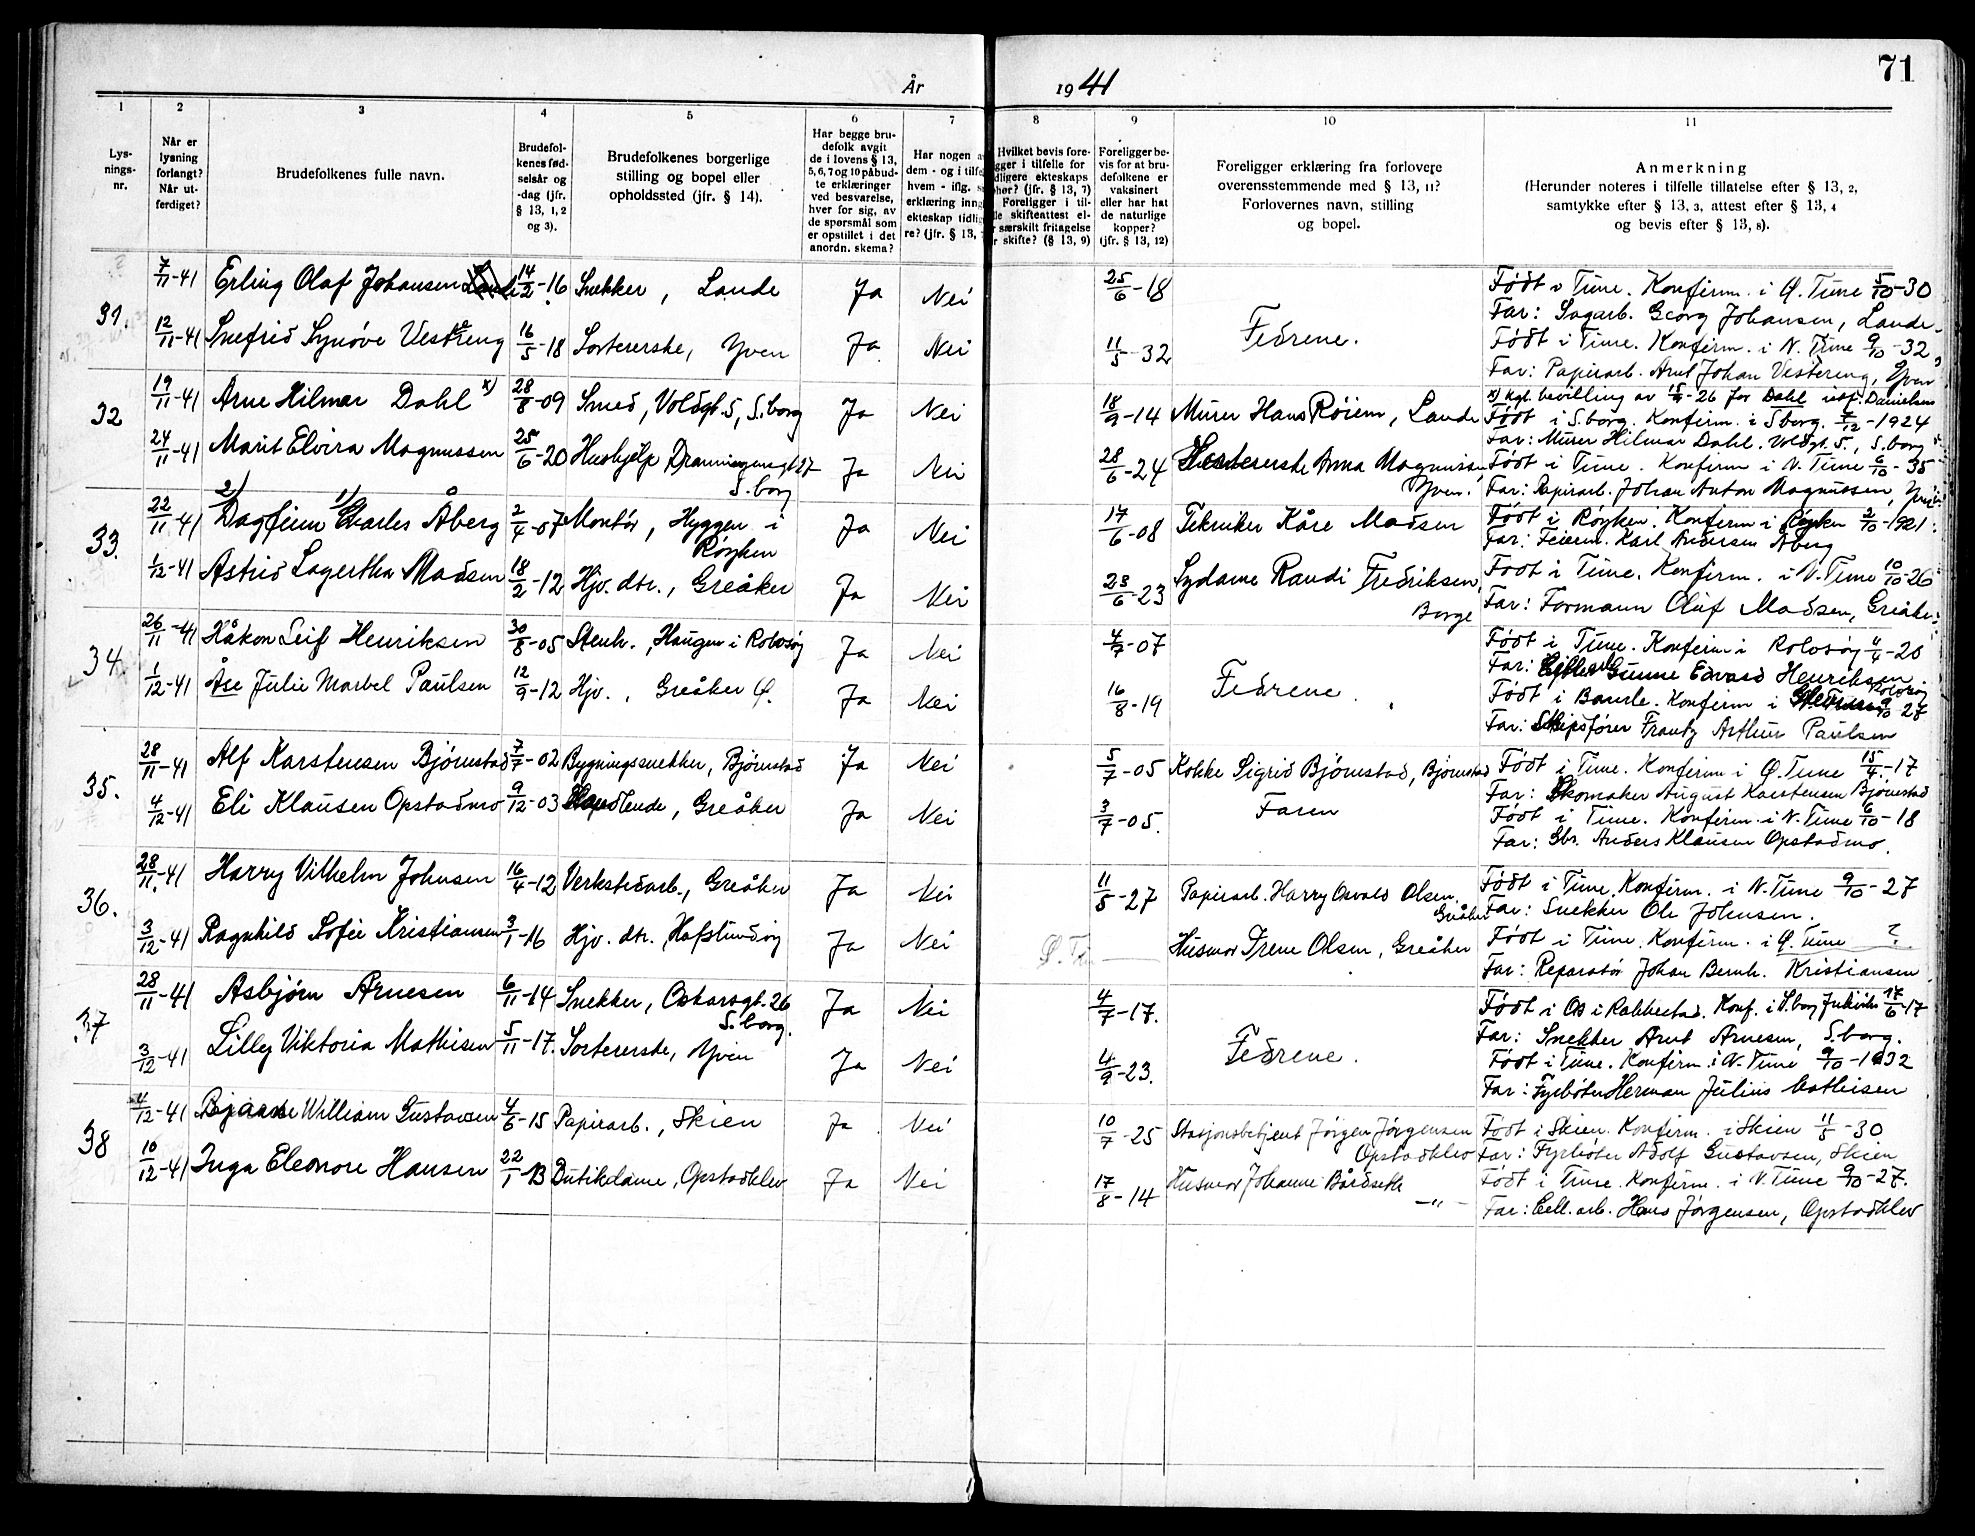 71
År 1941
1 2 3 4 5 6 7 8 9 10 11
Lys-
nings-
nr.
Når er
lysning
forlangt?
Når ut-
ferdiget?
Brudefolkenes fulle navn.
Brudefol-
kenes fød-
selsår og
-dag (jfr.
§ 13, 1, 2
og 3).
Brudefolkenes borgerlige
stilling og bopel eller
opholdssted (jfr. § 14).
Har begge bru-
defolk avgit
de i lovens § 13,
5, 6, 7 og 10 påbud-
te erklæringer
ved besvarelse,
hver for sig, av
de spørsmål som
er opstillet i det
anordn. skema?
Har nogen a
dem - og i tilfe
hvem - iflg. s
erklæring inng
ekteskap tidlig
re? (jfr. § 13,
Hvilket bevis fore-
gger i tilfelle for
dligere ekteskaps
hør? (jfr. § 13, 7)
Foreligger i til-
le skifteattest el-
r særskilt fritagelse
r skifte? (§ 13, 9)
Foreligger be-
vis for at bru-
defolkene er
vaksinert
eller har hat
de naturlige
kopper?
(jfr. § 13, 12)
Foreligger erklæring fra forlovere
overensstemmende med § 13, 11?
Forlovernes navn, stilling
og bopel.
Anmerkning
(Herunder noteres i tilfelle tillatelse efter § 13, 2,
samtykke efter § 13, 3, attest efter § 13, 4
og bevis efter § 13, 8).
31. 7/11-41 Erling Olaf Johansen 14/2-16 Snekker, Lande Ja Nei 25/6-18 Fedrene. Født i Tune. Konfirm. i Ø. Tune 5/10-30
Far: Sagarb. Georg Johansen, Lande
12/11-41 Snefrid Synøve Vestreng 16/5-18 Sortererske, Yven Ja Nei 11/5-32 Født i Tune. Konfirm. i N. Tune 9/10-32
Far: Papirarb. Arnt Johan Vestereng, Yven
32 19/11-41 Arne Hilmar Dahl x) 28/8-09 Smed, Voldgt. 5, S.borg Ja Nei 18/9-14 Murer Hans Røiem, Lande x) Kgl. bevilling av 15/9-26 for Dahl istf. Danielsen
Født i S.borg. Konfirm. i S.borg. 7/12-1924
Far: Murer Hilmar Dahl. Voldgt. 5, S.borg
24/11-41 Marit Elvira Magnussen 25/6-20 Hushjelp Dronningensgt 27
S.borg Ja Nei 28/6-24 Sortererske Anna Magnussen
Yven. Født i Tune. Konfirm i N. Tune 6/10-35
Far: Papirarb. Johan Anton Magnussen, Yven
33. 22/11-41 2) Dagfinn 1) Charles Åberg 2/4-07 Montør, Hyggen i
Røyken Ja Nei 17/6-08 Tekniker Kåre Madsen Født i Røyken. Konfirm i Røyken 2/10-1921.
Far: Feierm. Karl Andersen Åberg
1/12-41 Astrid Lagertha Madsen 18/2-12 Hjv. dtr., Greåker Ja Nei 23/6-23 Sydame Randi Fredriksen,
Borge Født i Tune. Konfirm. i N. Tune 10/10-26
Far: Formann Oluf Madsen, Greåker
34. 26/11-41 Håkon Leif Henriksen 30/8-05 Stenh., Haugen i Rolvsøy Ja Nei 4/7-07 Fedrene. Født i Tune. Konfirm i Rolvsøy 4/4-20
Far: Gunne Edvard Henriksen.
Rolvsøy
1/12-41 Åse Julie Marbel Paulsen 12/9-12 Hjv., Greåker Ø. Ja Nei 16/8-19 Født i Bamle. Konfirm i 9/10 27
Far: Skipsfører Frantz Arthur Paulsen
35. 28/11-41 Alf Karstensen Bjørnstad 7/7-02 Bygningssnekker, Bjørnstad Ja Nei 5/7-05 Kokke Sigrid Bjørnstad, Bjørnstad Født i Tune. Konfirm i Ø. Tune 15/4-17
Far: Skomaker August Karstensen Bjørnstad
4/12-41 Eli Klausen Opstadmo 9/12-03 Handlende, Greåker Ja Nei 3/7-05. Faren Født i Tune. Konfirm. i N. Tune 6/10-18
Far: Gbr. Anders Klausen Opstadmo.
36. 28/11-41 Harry Vilhelm Johnsen 16/4-12 Verkstedarb., Greåker Ja Nei 11/5-27 Papirarb. Harry Osvald Olsen.
Greåker Født i Tune. Konfirm. i N. Tune 9/10-27
Far: Snekker Ole Johnsen.
3/12-41 Ragnhild Sofie Kristiansen 3/1-16 Hjv. dtr., Hafslundsøy Ja Nei Ø. Tu — Husmor Irene Olsen, Greåker Født i Tune. Konfirm. i Ø. Tune ?
Far: Reparatør Johan Bernh. Kristiansen
37 28/11-41 Asbjørn Arnesen 6/11-14 Snekker, Oskarsgt. 26
S.borg. Ja Nei 4/7-17. Fedrene. Født i Os i Rakkestad. Konf. i S.borg frikirke 17/6-17
Far: Snekker Arnt Arnesen, S.borg.
3/12-41 Lilly Viktoria Mathisen 5/11-17. Sortererske, Yven Ja Nei 4/9-23. Født i Tune. Konfirm. i N. Tune 9/10-1932
Far: Fyrbøter Herman Julius Mathisen
38 4/12-41 Bjarne William Gustavsen 4/6-15 Papirarb., Skien Ja Nei 10/7-25 Stasjonsbetjent Jørgen Jørgensen
Opstadklev Født i Skien. Konfirm. i Skien 11/5-30
Far: Fyrbøter Adolf Gustavsen, Skien
10/12-41 Inga Eleonore Hansen 22/1-13 Butikdame, Opstadklev Ja Nei 17/8-14 Husmor Johanne Bårdseth
—"— Født i Tune. Konfirm. i N. Tune 9/10-27.
Far: Cell. arb. Hans Jørgensen, Opstadklev